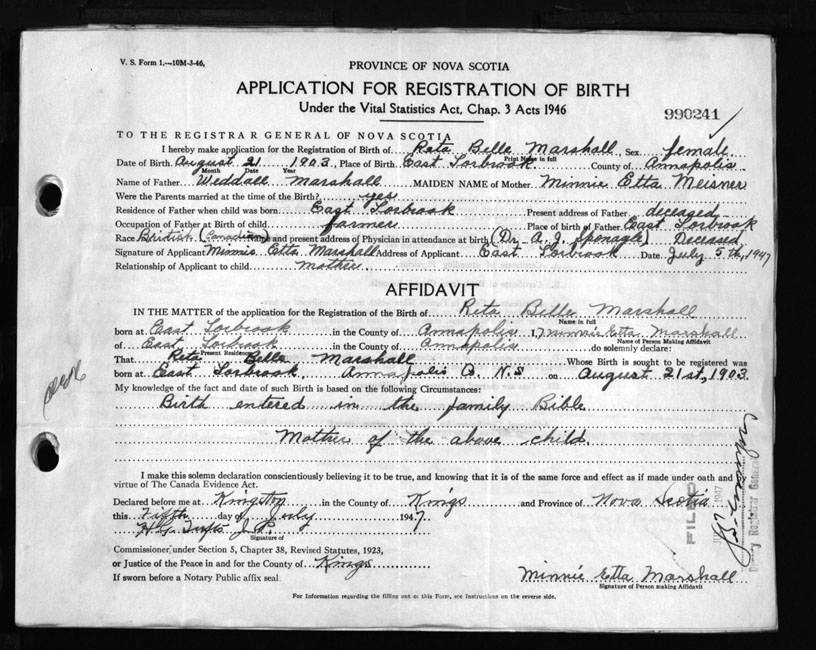 V. S. Form 1.—10M-3-46.
PROVINCE OF NOVA SCOTIA
APPLICATION FOR REGISTRATION OF BIRTH
Under the Vital Statistics Act, Chap. 3 Acts 1946
990241
TO THE REGISTRAR GENERAL OF NOVA SCOTIA
I hereby make application for the Registration of Birth of Reta Belle Marshall, Sex female
Print Name in full
Date of Birth August 21 1903, Place of Birth East Torbrook County of Annapolis
Month Date Year
Name of Father Weddall Marshall MAIDEN NAME of Mother Minnie Etta Meisner
Were the Parents married at the time of the Birth? yes
Residence of Father when child was born East Torbrook Present address of Father deceased
Occupation of Father at Birth of child farmer Place of birth of Father East Torbrook
Race British (Canadian) and present address of Physician in attendance at birth (Dr. A. J. Sponagle) Deceased
Signature of Applicant Minnie Etta Marshall Address of Applicant East Torbrook Date July 5th, 1947
Relationship of Applicant to child mother
AFFIDAVIT
IN THE MATTER of the application for the Registration of Birth of Reta Belle Marshall
Name in full
born at East Torbrook in the County of Annapolis I, Minnie Etta Marshall
Name of Person Making Affidavit
of East Torbrook in the County of Annapolis do solemnly declare:
Present Residence
That Reta Belle Marshall Whose Birth is sought to be registered was
born at East Torbrook Annapolis Co. N.S on August 21st, 1903.
My knowledge of the fact and date of such Birth is based on the following Circumstances:
Birth entered in the family Bible
Mother of the above child.
I make this solemn declaration conscientiously believing it to be true, and knowing that it is of the same force and effect as if made under oath and
virtue of The Canada Evidence Act.
Declared before me at Kingston in the County of Kings and Province of Nova Scotia
this Fifth day of July 1947
H. G. Tufts J. P.
Signature of
Commissioner under Section 5, Chapter 38, Revised Statutes, 1923,
or Justice of the Peace in and for the County of Kings
If sworn before a Notary Public affix seal.
Minnie Etta Marshall
Signature of Person making Affidavit
For Information regarding the filling out of this Form, see Instructions on the reverse side.
FILED
1947
Deputy Registrar General